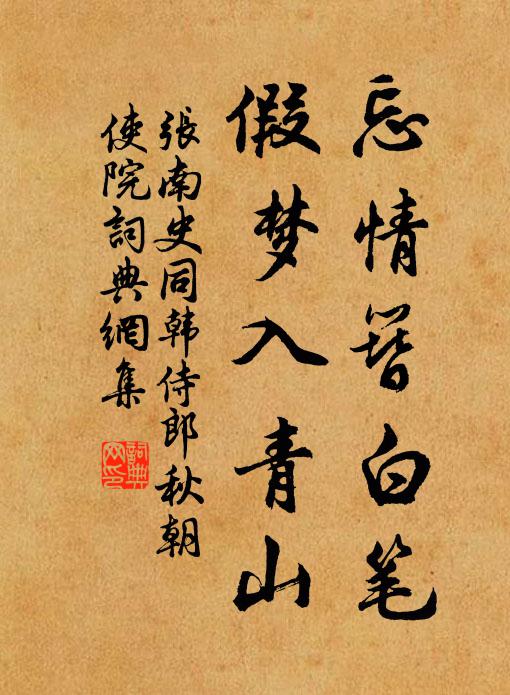 忘情簪白笔
假梦入青山
張南史同韩侍郎秋朝
使院詞典網集
詞典
网印